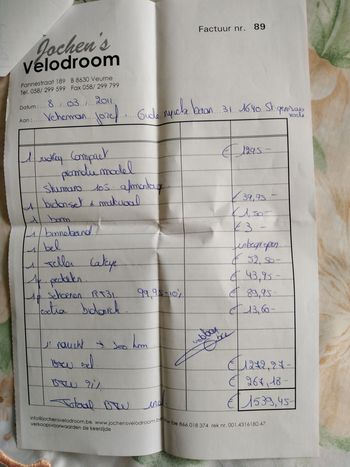 Factuur nr. 89
Jochen's
Velodroom
Pannestraat 189 B 8630 Veurne
Tel. 058/ 299 599 Fax 058/ 299 799
Datum: 8 . 03 . 2011
Aan: Veherman Jozef . 31 1640 St genesius
rode
1 Compact € 1295.-
model
Shimano 105
1 bidonset + € 39,95-
1 € 1,50-
1 binnenband € 3 -
1 bel inbegrepen
1 Teller Cateye € 52,50-
1p pedalen € 43,95-
1p schoenen RT31 99,95-10% € 89,95-
extra € 13,60-
1° → 300 km
BTW € 1272,27-
BTW 21% € 267,18-
Totaal BTW incl € 1539,45-
info@jochensvelodroom.be www.jochensvelodroom.be
866 018 374 rek nr. 001.4316180.47
verkoopsvoorwaarden zie keerzijde